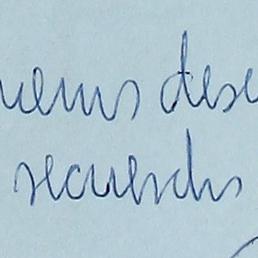 buenos dese
recuerdos